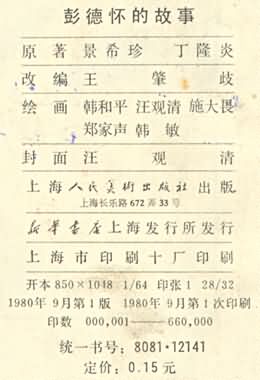 彭德怀的故事
原著 景希珍 丁隆炎
改编 王肇歧
绘画 韩和平 汪观清 施大畏
郑家声 韩敏
封面 汪观清
上海人民美術出版社 出版
上海长乐路 672 弄 33 号
新华书店上海发行所发行
上海市印刷十厂印刷
开本 850×1048 1/64 印张 1 28/32
1980年 9月第1版 1980年 9月第1次印刷
印数 000,001——660,000
统一书号：8081·12141
定价：0.15元